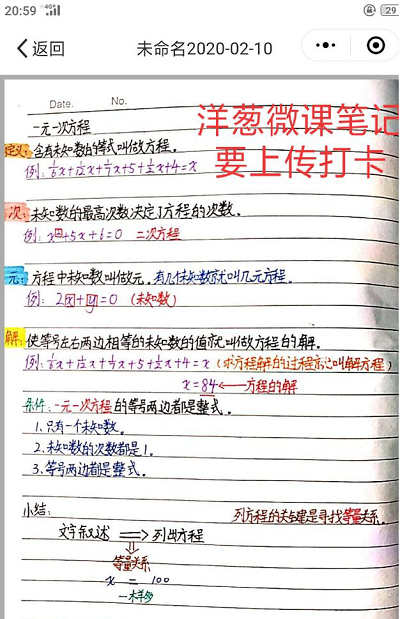 20:59
29
返回
未命名2020-02-10
Date. No.
洋葱微课笔记
要上传打卡
一元一次方程
定义:含有未知数的等式叫做方程。
例:1/6x+1/12x+1/7x+5+1/2x+4=x
次:未知数的最高次数决定了方程的次数。
例:x²+5x+6=0 二次方程
元:方程中未知数叫做元,有几个未知数就叫几元方程。
例:2x+y=0 (未知数)
解:使等号左右两边相等的未知数的值就叫做方程的解。
例:1/6x+1/12x+1/7x+5+1/2x+4=x (求方程解的过程就叫解方程)
x=84←方程的解
条件:一元一次方程的等号两边都是整式。
1.只有一个未知数。
2.未知数的次数都是1。
3.等号两边都是整式。
小结: 列方程的关键是寻找等量关系。
文字叙述 ⟹ 列出方程
等量关系
x = 100
一样多